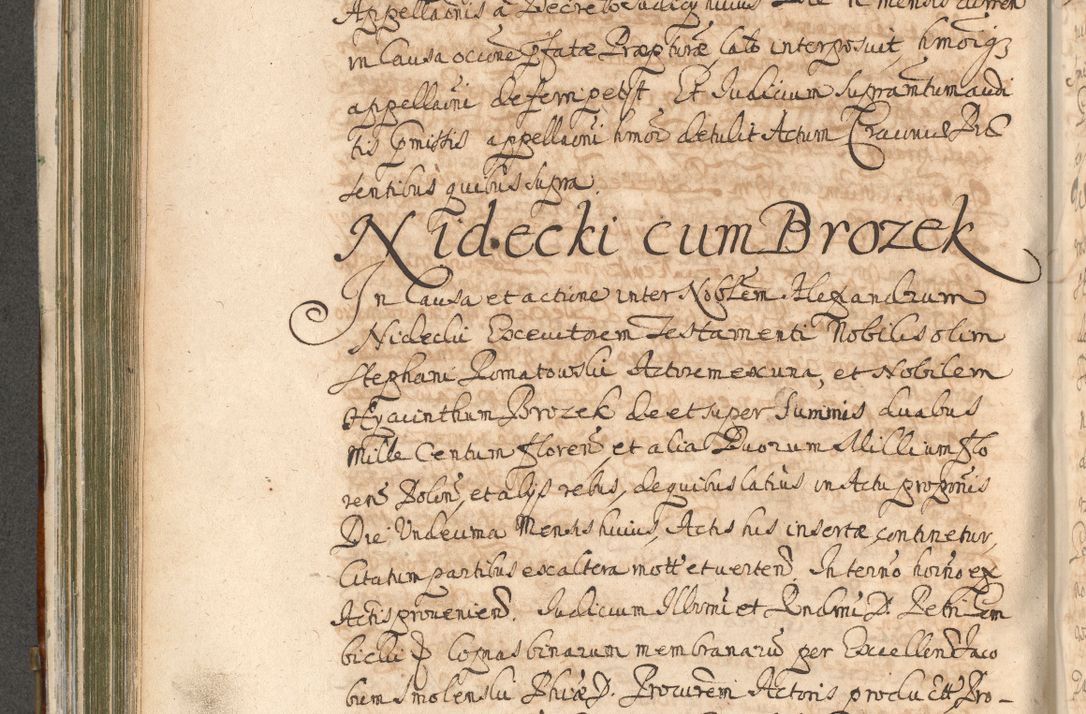 Appellaonis a Decreto Judicy huius Die 11 mensis curren
in Causa ocione pfatæ Præpturæ, lato interposuit, hmoiq3
appellaoni deferri petyt Et Judicium supranntum audi
tis pmissis appellaoni hmoi detulit Actum Cracoviæ Præ
sentibus quibus supra.
Nidecki cum Brozek
In Causa et actione inter Nobilem Alexandrum
Nidecki Executorem Testamenti Nobilis olim
Stephani Romatowski Actorem ex una, et Nobilem
Hyacinthum Brozek de et super summis duabus
Mille Centum floren et alia Duorum Millium flo
ren Polon, et alys rebus, de quibus latius in Actu proponis
Die Undecima Mensis huius, Actis his insertæ, continetur,
Citatum partibus ex altera motte et verten In termo horno ex
Actis provenien. Judicium Illrmi et Rndmi D. Petri Gem
bicki P copias binarum membranarum per Excellen Jaco
bum Smolenski Phiæ D. Procurem Actoris produ Ett Pro-